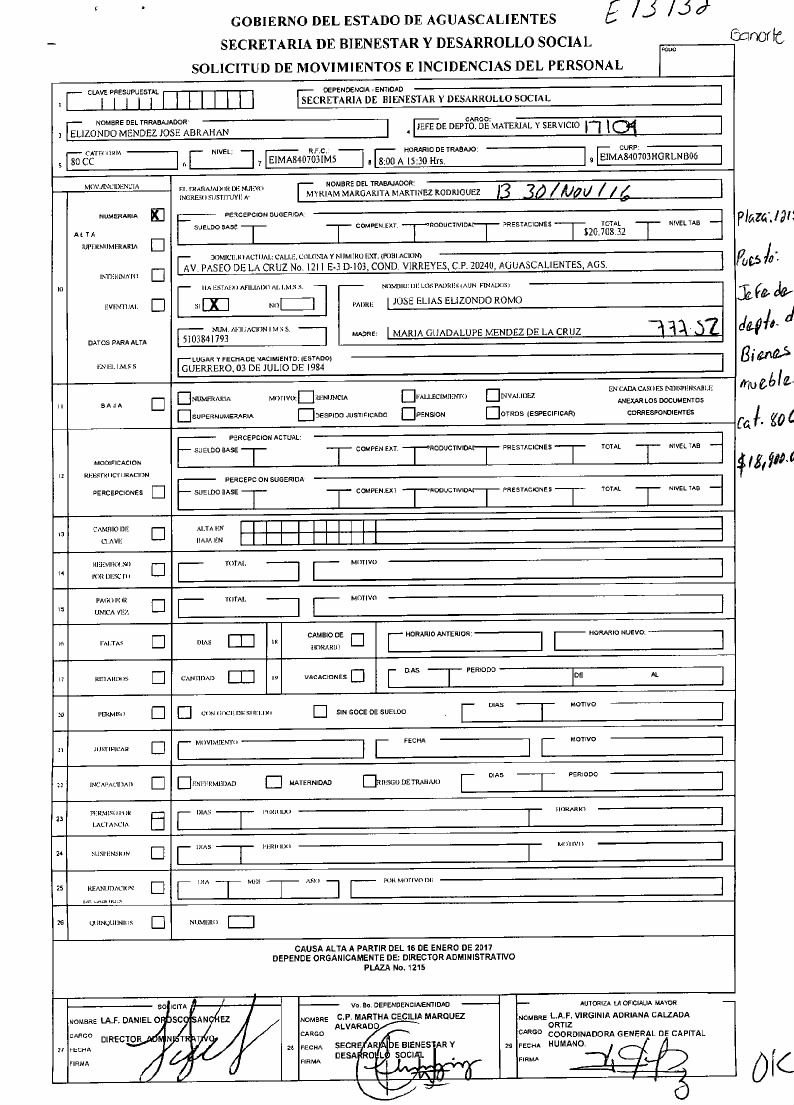 E 13132
GOBIERNO DEL ESTADO DE AGUASCALIENTES
SECRETARIA DE BIENESTAR Y DESARROLLO SOCIAL
SOLICITUD DE MOVIMIENTOS E INCIDENCIAS DEL PERSONAL
FOLIO
Ganorte
1 CLAVE PRESUPUESTAL
DEPENDENCIA - ENTIDAD
SECRETARIA DE BIENESTAR Y DESARROLLO SOCIAL
3 NOMBRE DEL TRRABAJADOR:
ELIZONDO MENDEZ JOSE ABRAHAN
4 CARGO:
JEFE DE DEPTO. DE MATERIAL Y SERVICIO 17104
5 CATEGORIA
80 CC
6 NIVEL:
7 R.F.C.:
EIMA840703IM5
8 HORARIO DE TRABAJO:
8:00 A 15:30 Hrs.
9 CURP:
EIMA840703HGRLNB06
MOV./INCIDENCIA
EL TRABAJADOR DE NUEVO
INGRESO SUSTITUYE A:
NOMBRE DEL TRABAJADOR:
MYRIAM MARGARITA MARTINEZ RODRIGUEZ B 30/NOV/16
NUMERARIA X
PERCEPCION SUGERIDA:
SUELDO BASE COMPEN.EXT. PRODUCTIVIDAD PRESTACIONES TOTAL NIVEL TAB
$20,708.32
ALTA
SUPERNUMERARIA
DOMICILIO ACTUAL: CALLE, COLONIA Y NUMERO EXT. (POBLACION)
AV. PASEO DE LA CRUZ No. 1211 E-3 D-103, COND. VIRREYES, C.P. 20240, AGUASCALIENTES, AGS.
INTERNATO
10
HA ESTADO AFILIADO AL I.M.S.S.
SI X NO
NOMBRE DE LOS PADRES (AUN FINADOS)
PADRE JOSE ELIAS ELIZONDO ROMO
EVENTUAL
NUM. AFILIACION I.M.S.S.
5103841793
MADRE: MARIA GUADALUPE MENDEZ DE LA CRUZ 77752
DATOS PARA ALTA
EN EL I.M.S.S
LUGAR Y FECHA DE NACIMIENTO: (ESTADO)
GUERRERO, 03 DE JULIO DE 1984
Plaza: 1215
Puesto:
Jefe de
depto. d
Bienes
mueble
Cat. 80C
$18,900.0
11 BAJA
NUMERARIA MOTIVO: RENUNCIA FALLECIMIENTO INVALIDEZ
SUPERNUMERARIA DESPIDO JUSTIFICADO PENSION OTROS (ESPECIFICAR)
EN CADA CASO ES INDISPENSABLE
ANEXAR LOS DOCUMENTOS
CORRESPONDIENTES
12 MODIFICACION
REESTRUCTURACION
PERCEPCIONES
PERCEPCION ACTUAL:
SUELDO BASE COMPEN EXT. PRODUCTIVIDAD PRESTACIONES TOTAL NIVEL TAB
PERCEPCION SUGERIDA
SUELDO BASE COMPEN.EXT PRODUCTIVIDAD PRESTACIONES TOTAL NIVEL TAB
13 CAMBIO DE
CLAVE
ALTA EN
BAJA EN
14 REEMBOLSO
POR DESCTO
TOTAL MOTIVO
15 PAGO POR
UNICA VEZ
TOTAL MOTIVO
16 FALTAS DIAS
18 CAMBIO DE
HORARIO
HORARIO ANTERIOR: HORARIO NUEVO:
17 RETARDOS CANTIDAD
19 VACACIONES DIAS PERIODO DE AL
20 PERMISO CON GOCE DE SUELDO SIN GOCE DE SUELDO DIAS MOTIVO
21 JUSTIFICAR MOVIMIENTO FECHA MOTIVO
22 INCAPACIDAD ENFERMEDAD MATERNIDAD RIESGO DE TRABAJO DIAS PERIODO
23 PERMISO POR
LACTANCIA
DIAS PERIODO HORARIO
24 SUSPENSION DIAS PERIODO MOTIVO
25 REANUDACION
DIA MES AÑO POR MOTIVO DE
26 QUINQUENIOS NUMERO
CAUSA ALTA A PARTIR DEL 16 DE ENERO DE 2017
DEPENDE ORGANICAMENTE DE: DIRECTOR ADMINISTRATIVO
PLAZA No. 1215
27 SOLICITA
NOMBRE LA.F. DANIEL OROSCO SANCHEZ
CARGO DIRECTOR ADMINISTRATIVO
FECHA
FIRMA
28 Vo. Bo. DEPENDENCIA/ENTIDAD
NOMBRE C.P. MARTHA CECILIA MARQUEZ
ALVARADO
CARGO
FECHA SECRETARIA DE BIENESTAR Y
DESARROLLO SOCIAL
FIRMA
29 AUTORIZA LA OFICIALIA MAYOR
NOMBRE L.A.F. VIRGINIA ADRIANA CALZADA
ORTIZ
CARGO COORDINADORA GENERAL DE CAPITAL
FECHA HUMANO.
FIRMA
OK